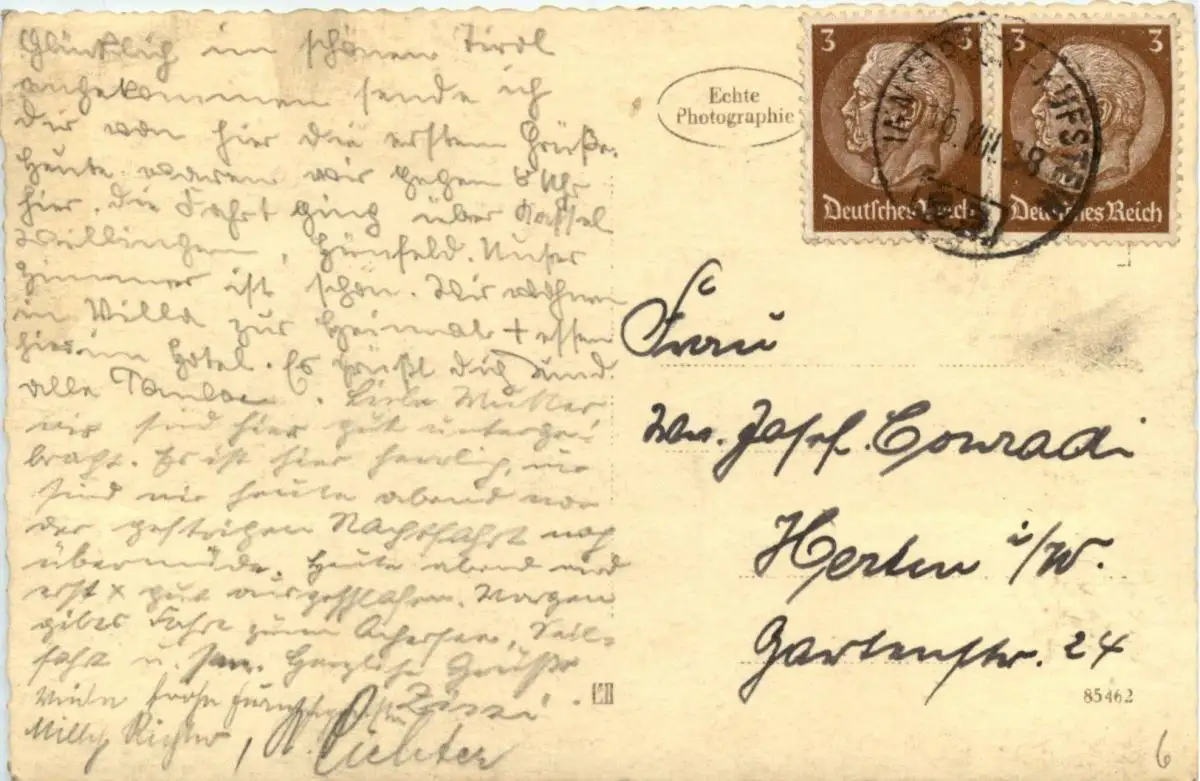 Glücklich im schönen Tirol
angekommen sende ich
Dir von hier die ersten Grüße.
Heute waren wir gegen 5 Uhr
hier. Die Fahrt ging über Kassel
Hünfeld. Unser
Zimmer ist schön. Wir wohnen
in Villa zur Heimat + essen
hier im Hotel. Es grüßt Dich und
alle Liebe Mutter
wir sind hier gut unterge-
bracht. Es ist hier herrlich, nur
sind wir heute abend von
der gestrigen Nachtfahrt noch
übermüde. Heute abend wird
erst x gut ausgeschlafen. Morgen
gibts Fahrt zum Achensee, Seil-
fahrt u. Herzliche Grüße
Viele frohe
Milly Richter, Richter
Echte
Photographie
3 3
Deutsches Reich
3 3
Deutsches Reich
KUFSTEIN
VIII 38
Frau
Ww. Josef Conradi
Herten i/W.
Gartenstr. 24
85462
6